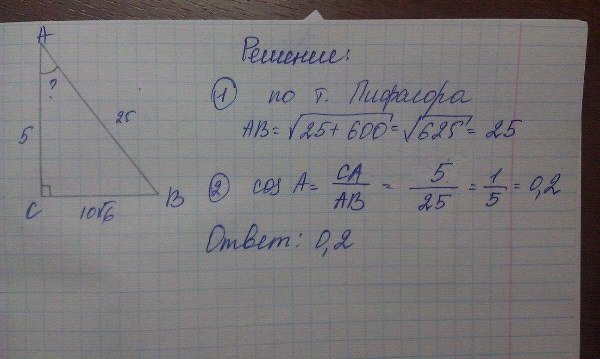 A
?
5
25
C
10√6
B
Решение:
① по т. Пифагора
AB = √(25 + 600) = √625 = 25
② cos A = CA/AB = 5/25 = 1/5 = 0,2
Ответ: 0,2